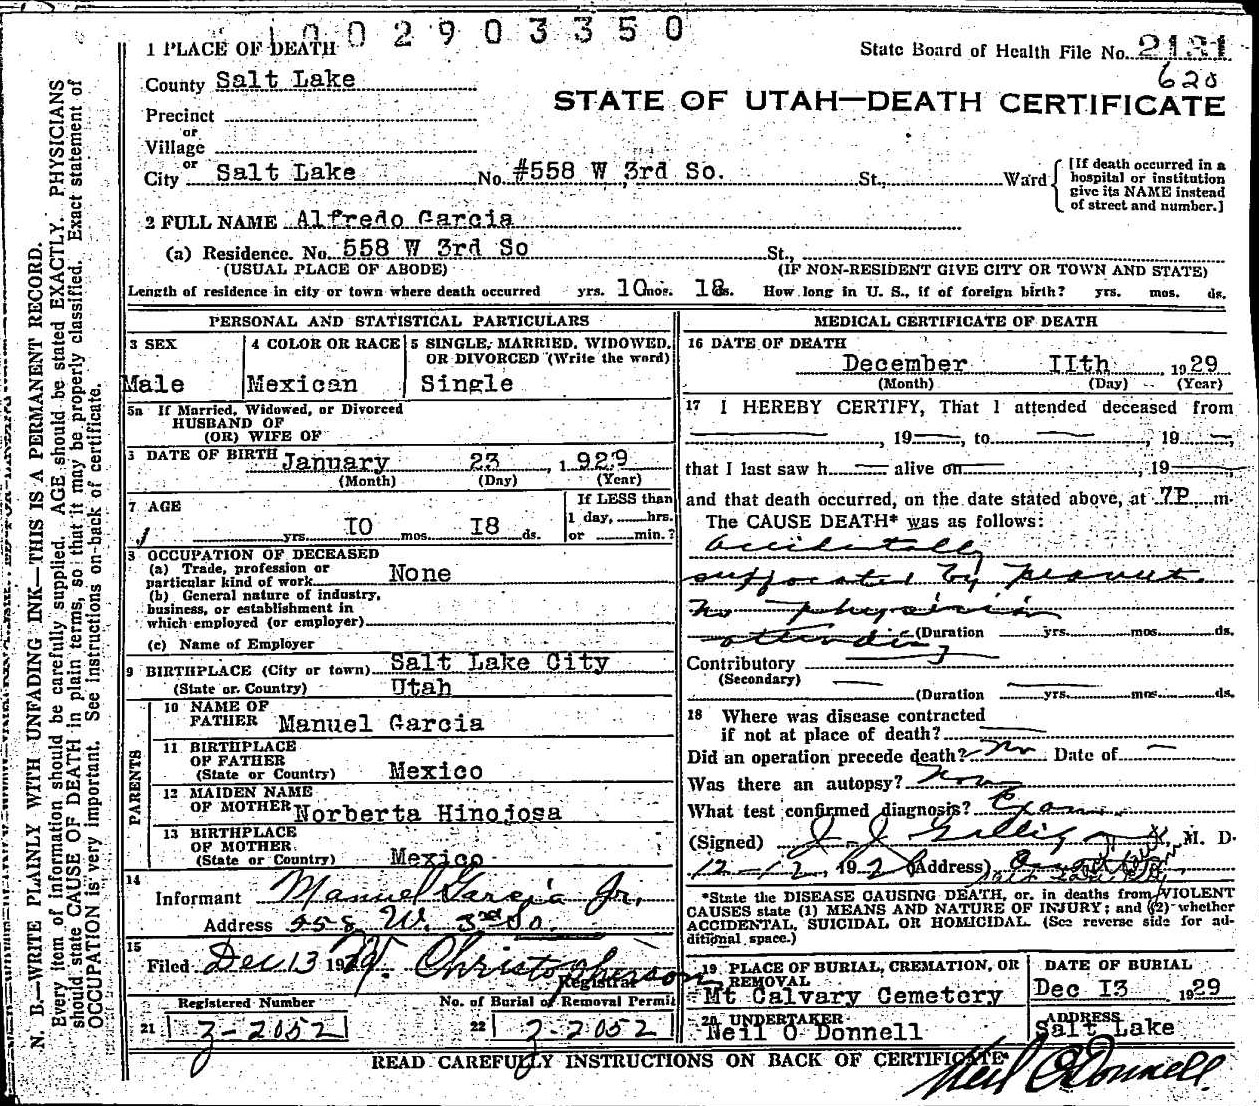 1002903350
1 PLACE OF DEATH
State Board of Health File No. 2131
620
County Salt Lake
STATE OF UTAH—DEATH CERTIFICATE
Precinct
or
Village
or
City Salt Lake No. #558 W 3rd So. St., Ward
[If death occurred in a
hospital or institution
give its NAME instead
of street and number.]
2 FULL NAME Alfredo Garcia
(a) Residence. No. 558 W 3rd So St.,
(USUAL PLACE OF ABODE) (IF NON-RESIDENT GIVE CITY OR TOWN AND STATE)
Length of residence in city or town where death occurred yrs. 10 mos. 18 ds. How long in U. S., if of foreign birth? yrs. mos. ds.
PERSONAL AND STATISTICAL PARTICULARS
3 SEX
Male
4 COLOR OR RACE
Mexican
5 SINGLE, MARRIED, WIDOWED,
OR DIVORCED (Write the word)
Single
5a If Married, Widowed, or Divorced
HUSBAND OF
(OR) WIFE OF
DATE OF BIRTH January 23, 1929
(Month) (Day) (Year)
7 AGE
If LESS than
1 day, hrs.
or min.?
yrs. IO mos. I8 ds.
OCCUPATION OF DECEASED
(a) Trade, profession or
particular kind of work None
(b) General nature of industry,
business, or establishment in
which employed (or employer)
(c) Name of Employer
9 BIRTHPLACE (City or town) Salt Lake City
(State or Country) Utah
PARENTS
10 NAME OF
FATHER Manuel Garcia
11 BIRTHPLACE
OF FATHER
(State or Country) Mexico
12 MAIDEN NAME
OF MOTHER Norberta Hinojosa
13 BIRTHPLACE
OF MOTHER
(State or Country) Mexico
14
Informant Manuel Garcia Jr,
Address 558 W. 3rd So.
15
Filed Dec 13 1929 Christopherson
Registrar
Registered Number
21 2-2052
No. of Burial or Removal Permit
22 2-2052
MEDICAL CERTIFICATE OF DEATH
16 DATE OF DEATH
December IIth 1929
(Month) (Day) (Year)
17 I HEREBY CERTIFY, That I attended deceased from
, 19 , to , 19 ,
that I last saw h alive on , 19
and that death occurred, on the date stated above, at 7P m.
The CAUSE DEATH* was as follows:
accidentally
suffocated by peanut.
No physician
attending
(Duration yrs. mos. ds.
Contributory
(Secondary)
(Duration yrs. mos. ds.
18 Where was disease contracted
if not at place of death?
Did an operation precede death? No Date of
Was there an autopsy? None
What test confirmed diagnosis? Exam.
(Signed) J J Galligan M. D.
12-12, 192 (Address)
Salt Lake City
*State the DISEASE CAUSING DEATH, or, in deaths from VIOLENT
CAUSES state (1) MEANS AND NATURE OF INJURY; and (2) whether
ACCIDENTAL, SUICIDAL OR HOMICIDAL. (See reverse side for ad-
ditional space.)
19 PLACE OF BURIAL, CREMATION, OR
REMOVAL
Mt Calvary Cemetery
DATE OF BURIAL
Dec I3 1929
20 UNDERTAKER
Neil O Donnell
ADDRESS
Salt Lake
READ CAREFULLY INSTRUCTIONS ON BACK OF CERTIFICATE
Neil O'Donnell
N. B.—WRITE PLAINLY WITH UNFADING INK—THIS IS A PERMANENT RECORD.
Every item of information should be carefully supplied. AGE should be stated EXACTLY. PHYSICIANS
should state CAUSE OF DEATH in plain terms, so that it may be properly classified. Exact statement of
OCCUPATION is very important. See instructions on back of certificate.